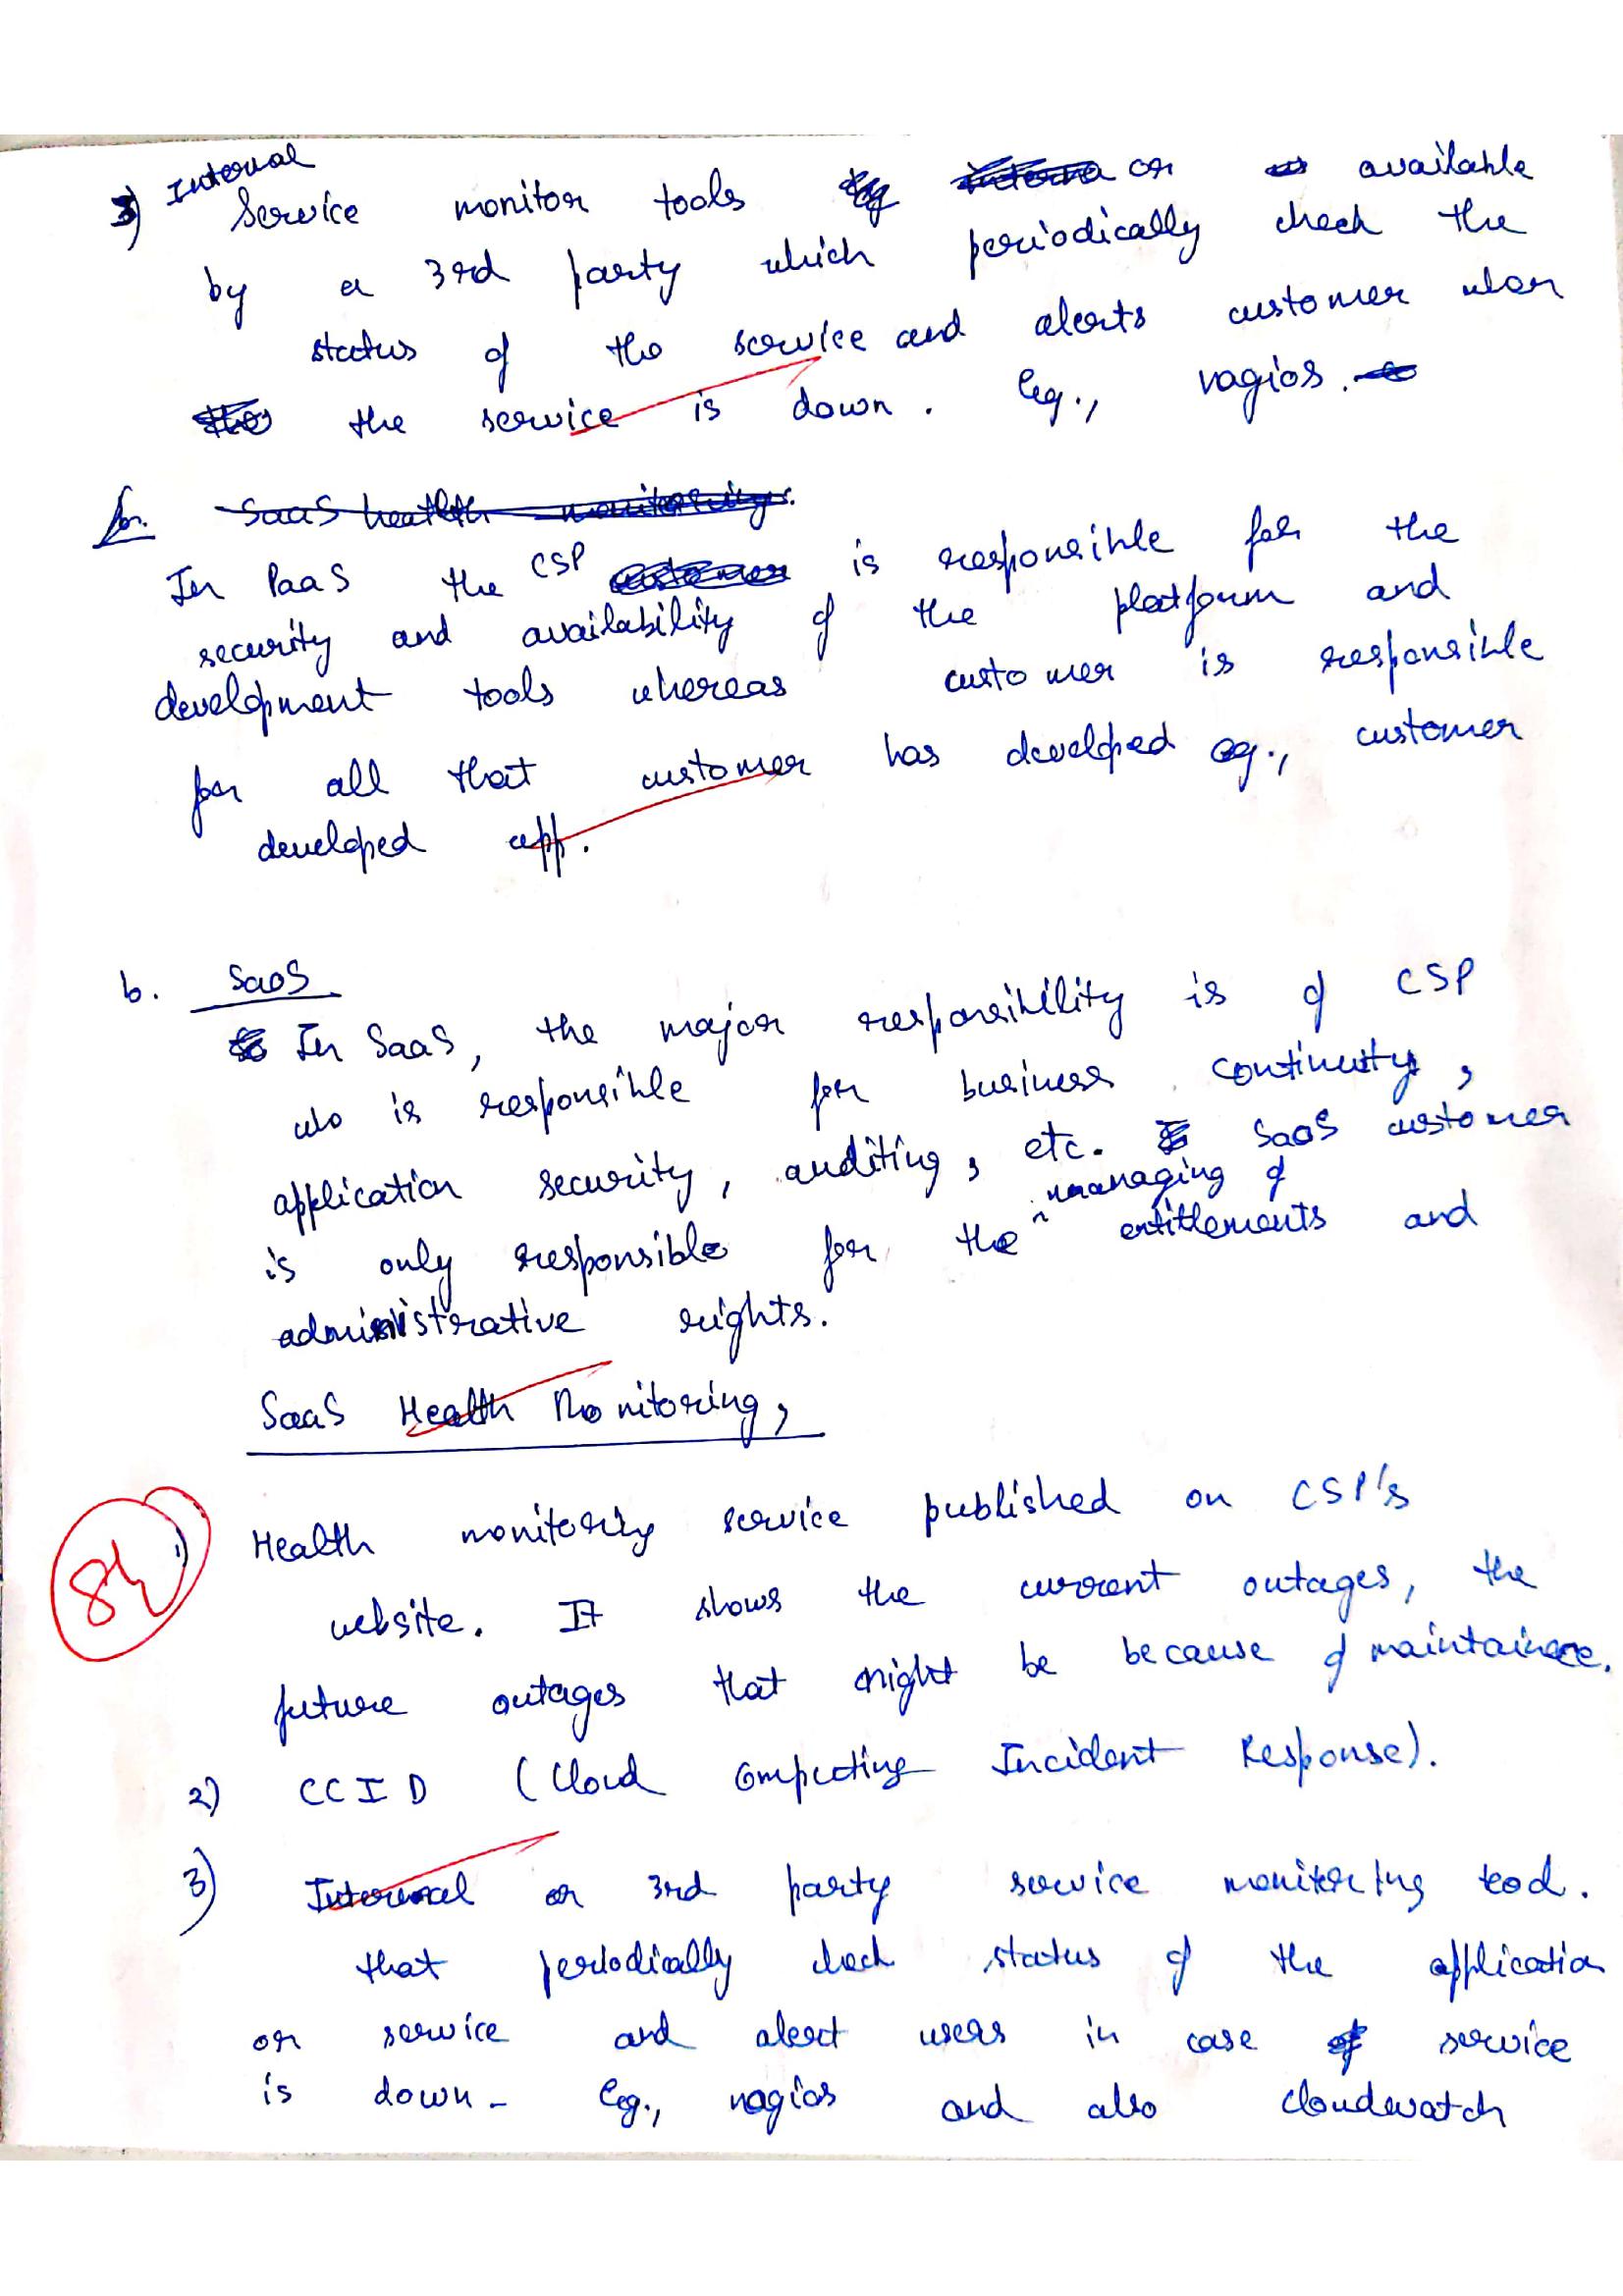 3) Internal
Service monitor tools or available
by a 3rd party which periodically check the
status of the service and alerts customer when
the service is down. Eg., nagios.
SaaS health monitoring.
In PaaS the CSP is responsible for the
security and availability of the platform and
development tools whereas customer is responsible
for all that customer has developed eg., customer
developed app.
b. SaaS
In SaaS, the major responsibility is of CSP
who is responsible for business continuity,
application security, auditing, etc. SaaS customer
is only responsible for the ^ managing of entitlements and
administrative rights.
SaaS Health Monitoring,
1) Health monitoring service published on CSP's
website. It shows the current outages, the
future outages that might be because of maintainece.
2) CCID (Cloud Computing Incident Response).
3) Internal or 3rd party service monitoring tool.
that periodically check status of the application
or service and alert users in case of service
is down. Eg., nagios and also cloudwatch